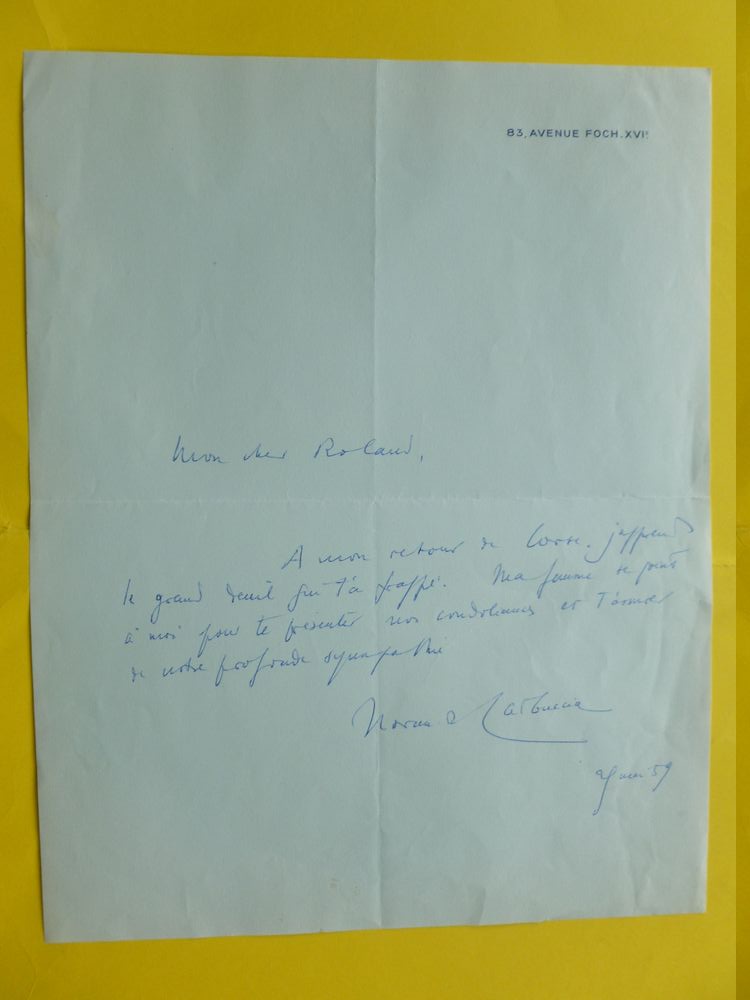 83, AVENUE FOCH. XVIe
Mon cher Roland,
A mon retour de Corse. j'apprends
le grand deuil qui t'a frappé. Ma femme se joint
à moi pour te présenter nos condoléances et t'assurer
de notre profonde sympathie
Carbuccia
mai 59